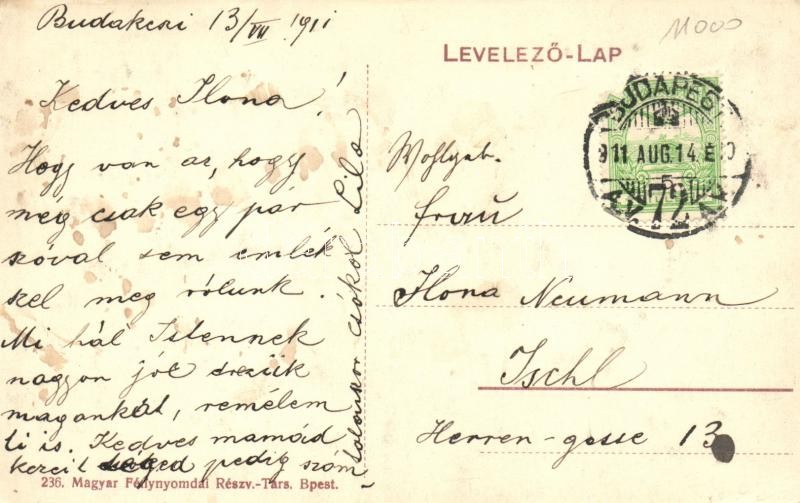 Budakeszi 13/VII 1911
11000
LEVELEZŐ-LAP
Kedves Ilona!
Hogy van az, hogy
még csak egy pár
szóval sem emlék
szel meg rólunk.
Mi hál Istennek
nagyon jól érezzük
magunkat, remélem
ti is. Kedves mamád
kezeit pedig szám-
talanszor csókol Lila
BUDAPEST
911 AUG.14.É.
5
72
Wohlgeb.
Frau
Ilona Neumann
Ischl
Herren-gasse 13
236. Magyar Fénynyomdai Részv.-Társ. Bpest.